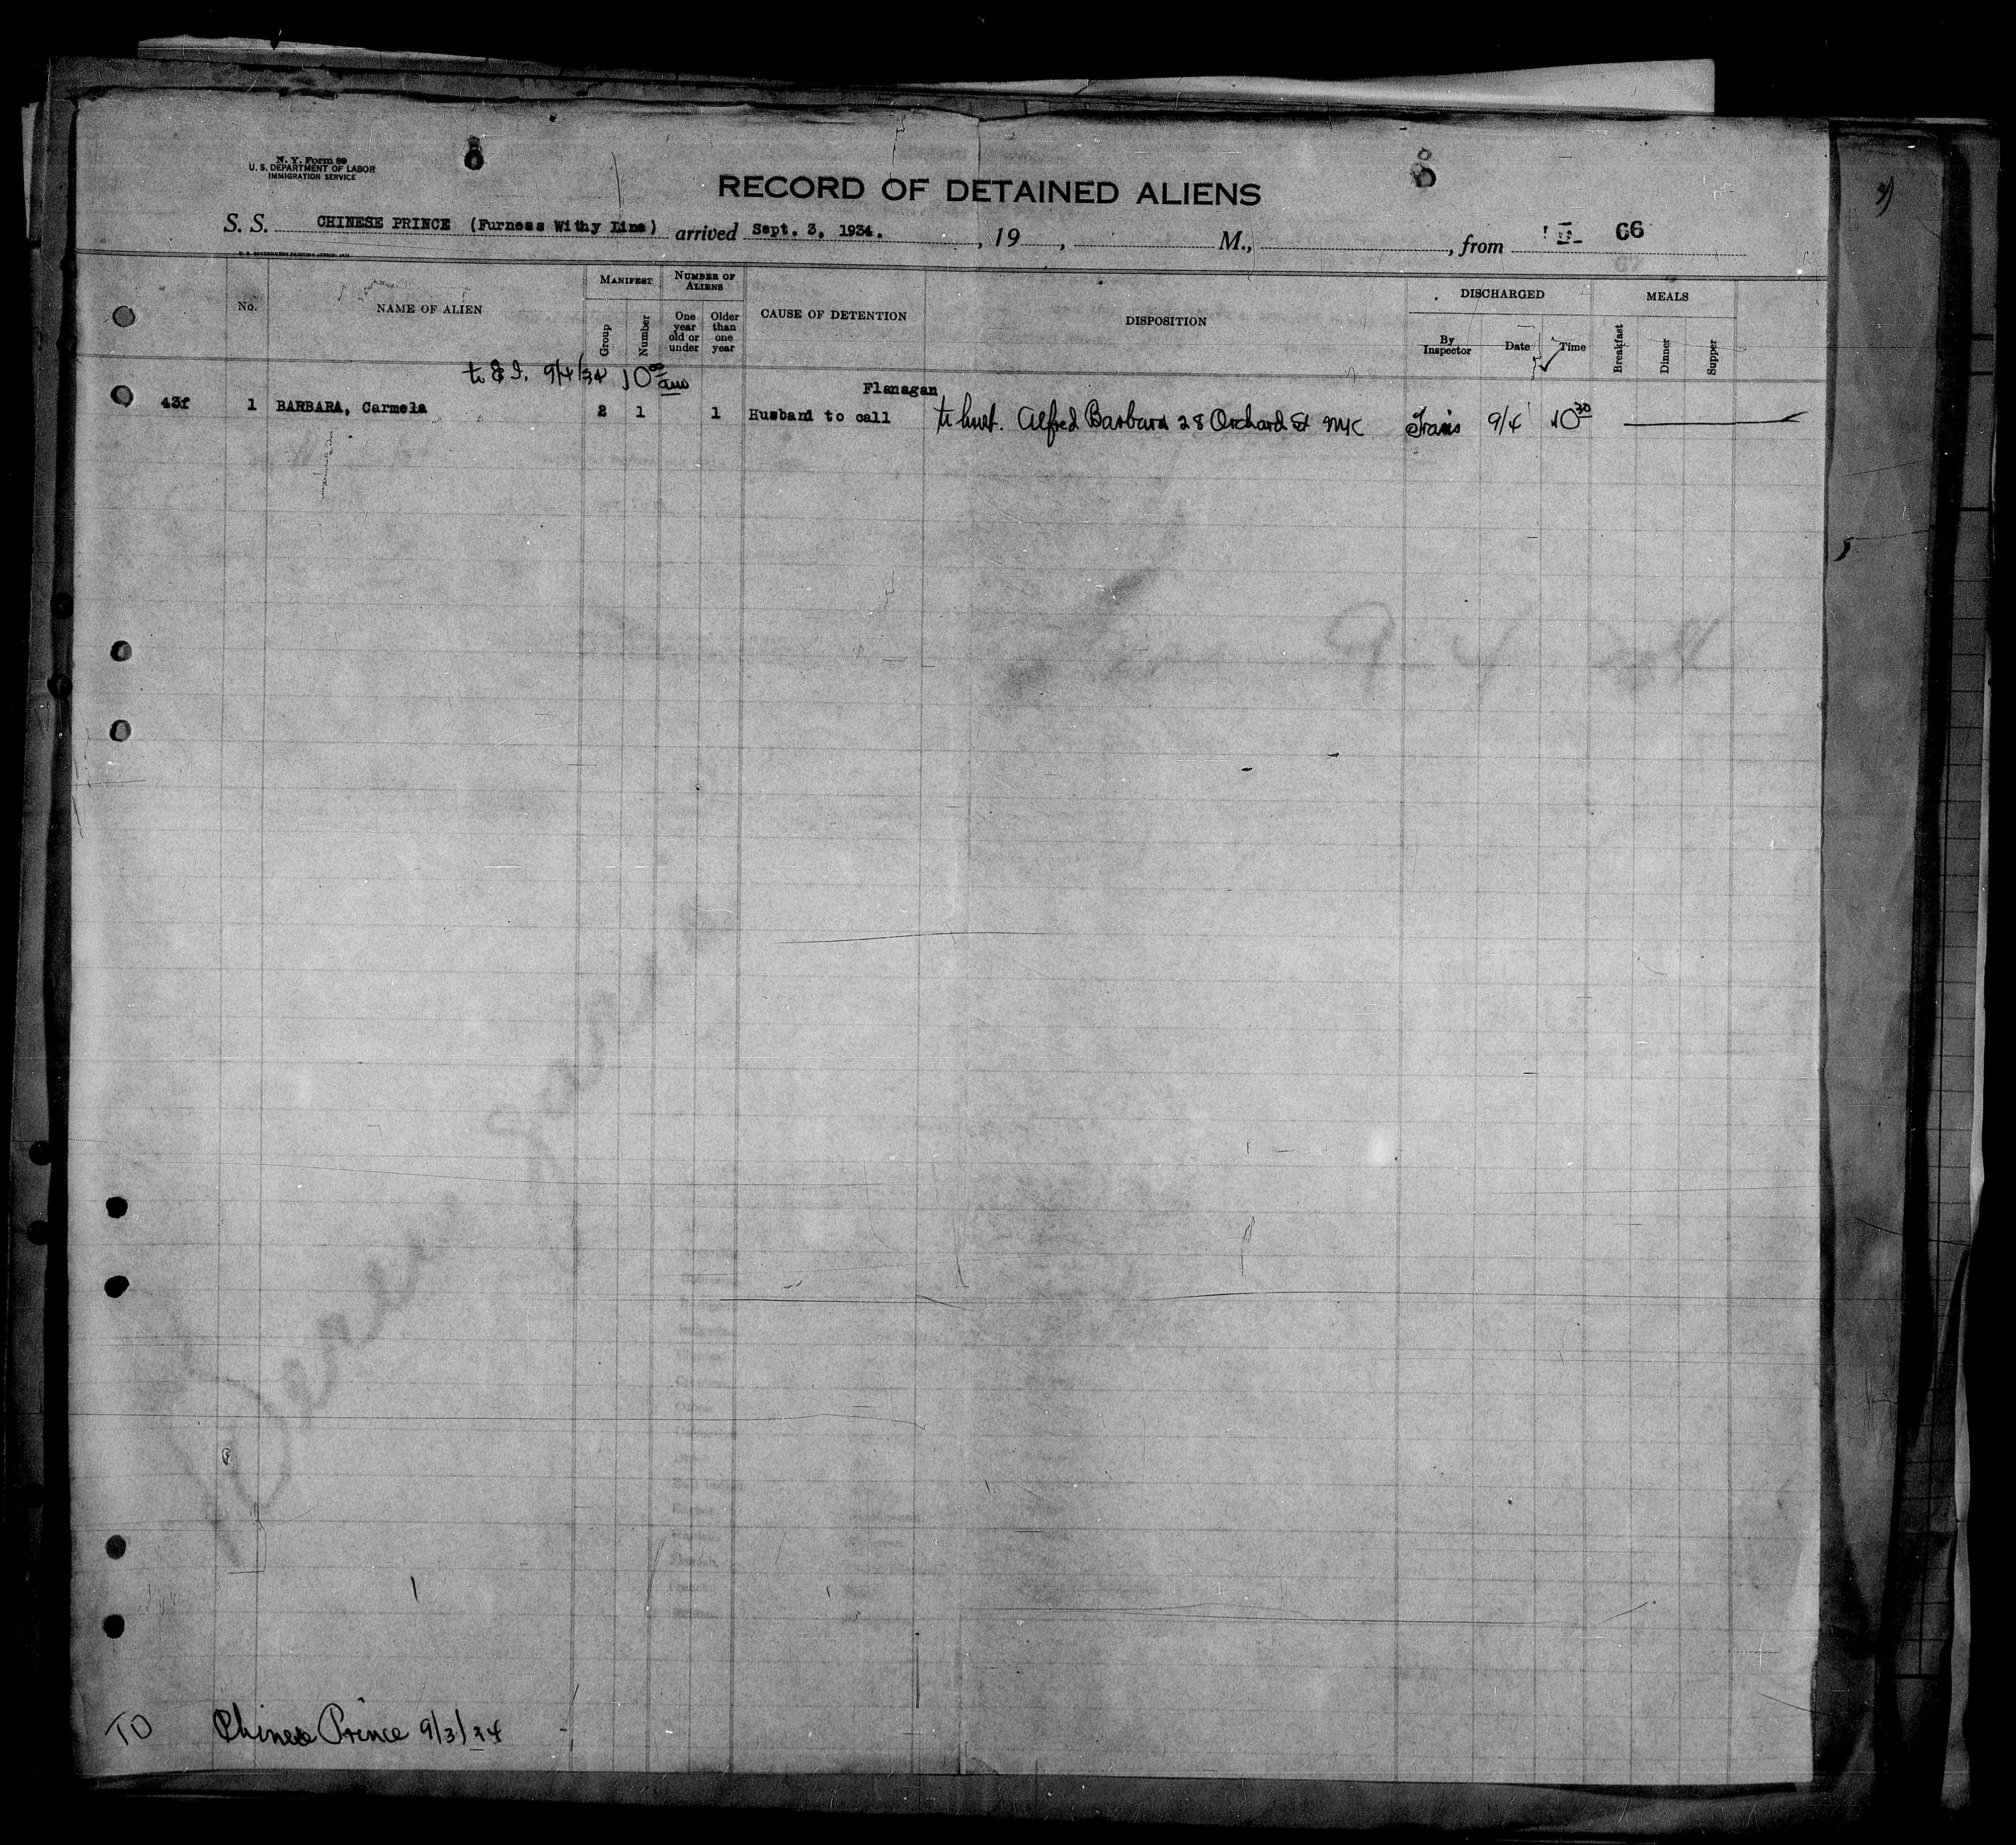 N. Y. Form 89
U. S. DEPARTMENT OF LABOR
IMMIGRATION SERVICE
8
8
RECORD OF DETAINED ALIENS
S. S. CHINESE PRINCE (Furness Withy Line) arrived Sept. 3, 1934. , 19 , M., , from 66
No.
NAME OF ALIEN
MANIFEST
Group
Number
NUMBER OF ALIENS
One year old or under
Older than one year
CAUSE OF DETENTION
DISPOSITION
DISCHARGED
By Inspector
Date
Time
MEALS
Breakfast
Dinner
Supper
to E I. 9/4/34 10 am
Flanagan
43f 1 BARBARA, Carmela 2 1 1 Husband to call to husb. Alfred Barbara 28 Orchard St NYC Travis 9/4 10 30
9 4
TO Chinese Prince 9/3/34